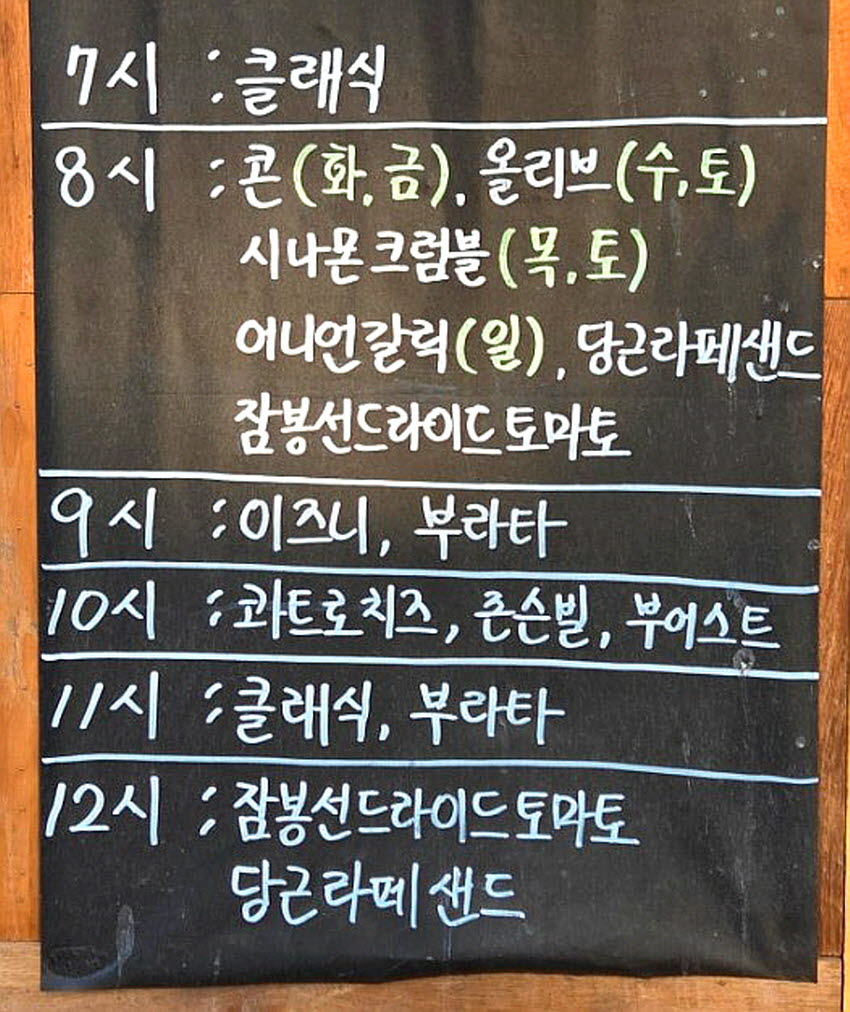 7시 : 클래식
8시 : 콘(화, 금), 올리브(수, 토)
시나몬크럼블(목, 토)
어니언갈릭(일), 당근라페샌드
잠봉선드라이드토마토
9시 : 이즈니, 부라타
10시 : 콰트로치즈, 존슨빌, 부어스트
11시 : 클래식, 부라타
12시 : 잠봉선드라이드토마토
당근라페샌드